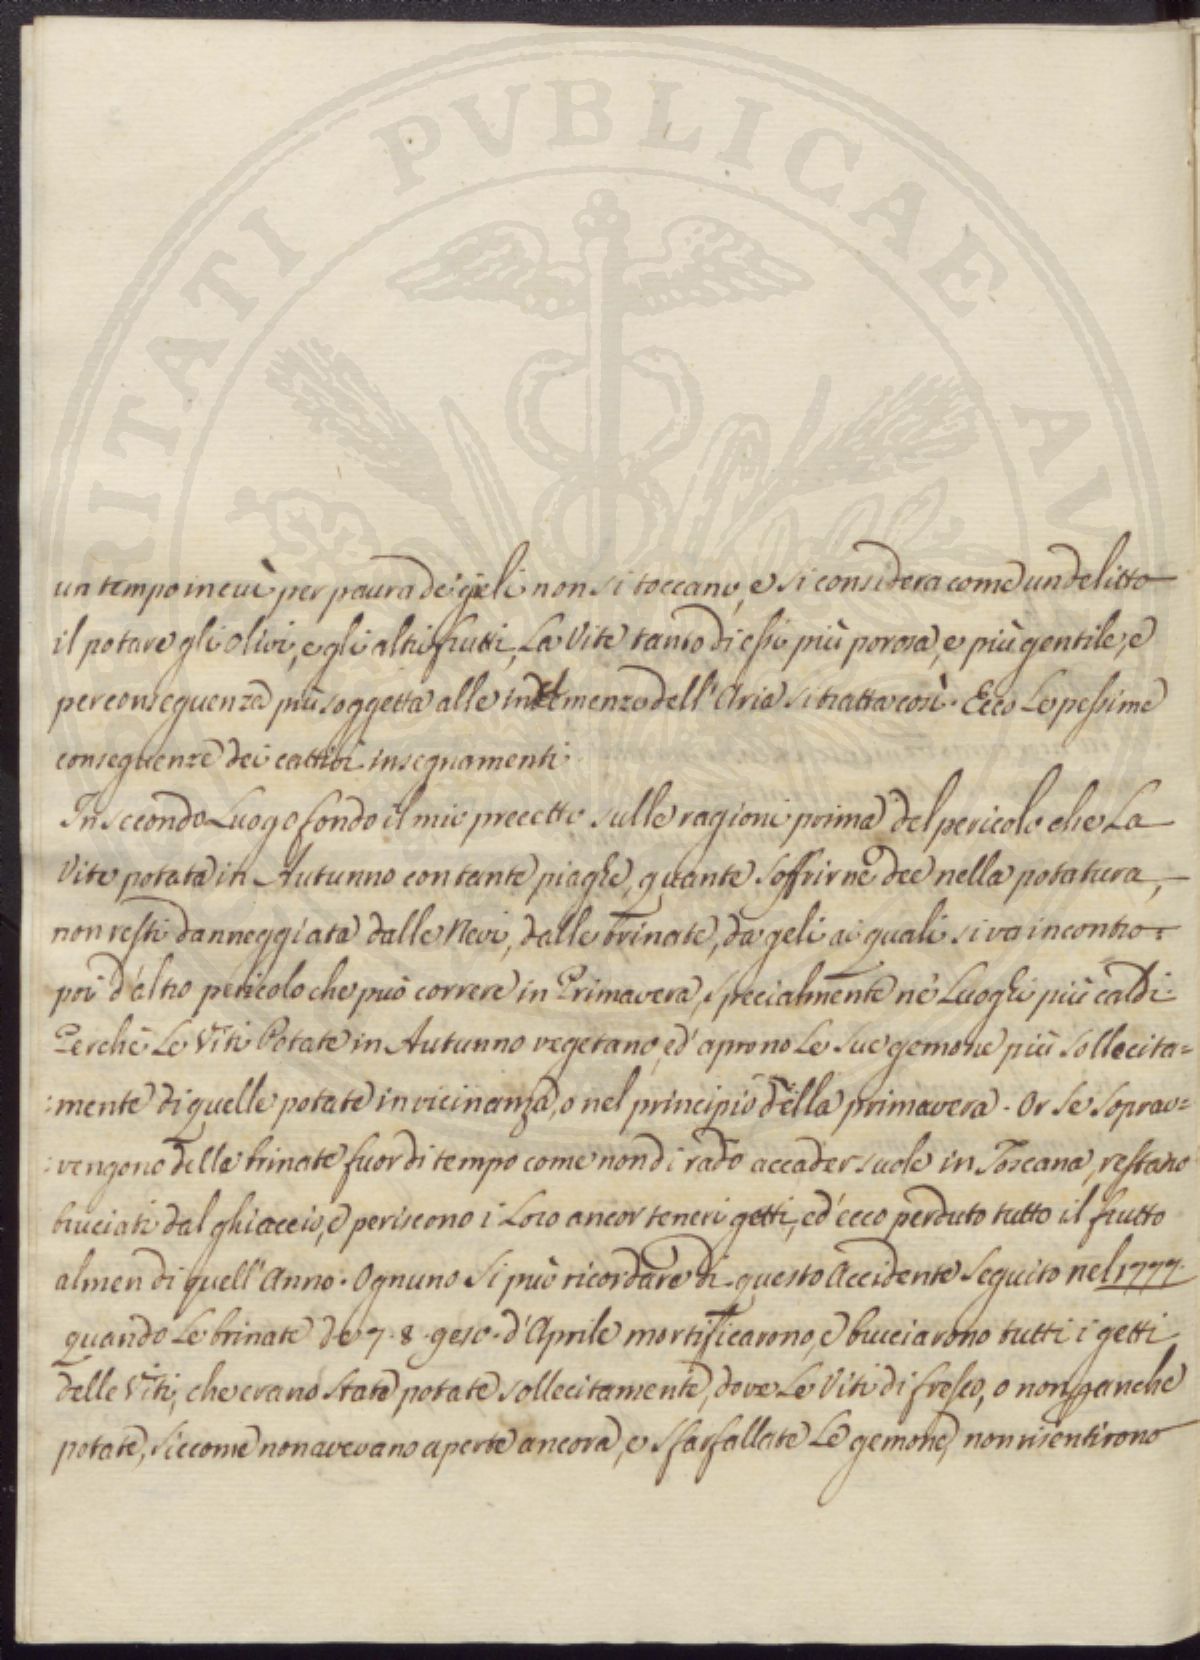 PVBLICAE
RITATI
AV
un tempo in cui per paura de' gieli non si toccano, e si considera come un delitto
il potare gli Olivi, e gli altri frutti, La Vite tanto di essi più porosa, e più gentile, e
per conseguenza più soggetta alle intemenze dell'Aria si tratta così. Ecco Le pessime
conseguenze dei cattivi insegnamenti.
In secondo Luogo fondo il mio precetto sulle ragioni prima del pericolo che La
Vite potata in Autunno con tante piaghe, quante Soffrirne dee nella potatura,
non resti danneggiata dalle Nevi, dalle brinate, da geli ai quali si va incontro:
poi d'altro pericolo che può correre in Primavera, specialmente ne' Luoghi più caldi.
Perchè Le Viti Potate in Autunno vegetano, ed' aprono Le Sue gemone più sollecita=
:mente di quelle potate in vicinanza, o nel principio della primavera. Or Se Soprav=
:vengono delle brinate fuor di tempo come non di rado accader suole in Toscana, restano
bruciati dal ghiaccio, e periscono i Loro ancor teneri getti, ed' ecco perduto tutto il frutto
almen di quell'Anno. Ognuno Si può ricordare di questo Accidente Seguito nel 1777.
quando Le brinate de 7. 8. e 10. d'Aprile mortificarono, e bruciarono tutti i getti
delle Viti, che erano State potate sollecitamente, dove Le Viti di fresco, o non per anche
potate, siccome non avevano aperte ancora, e sfarfallate Le gemone, non risentirono